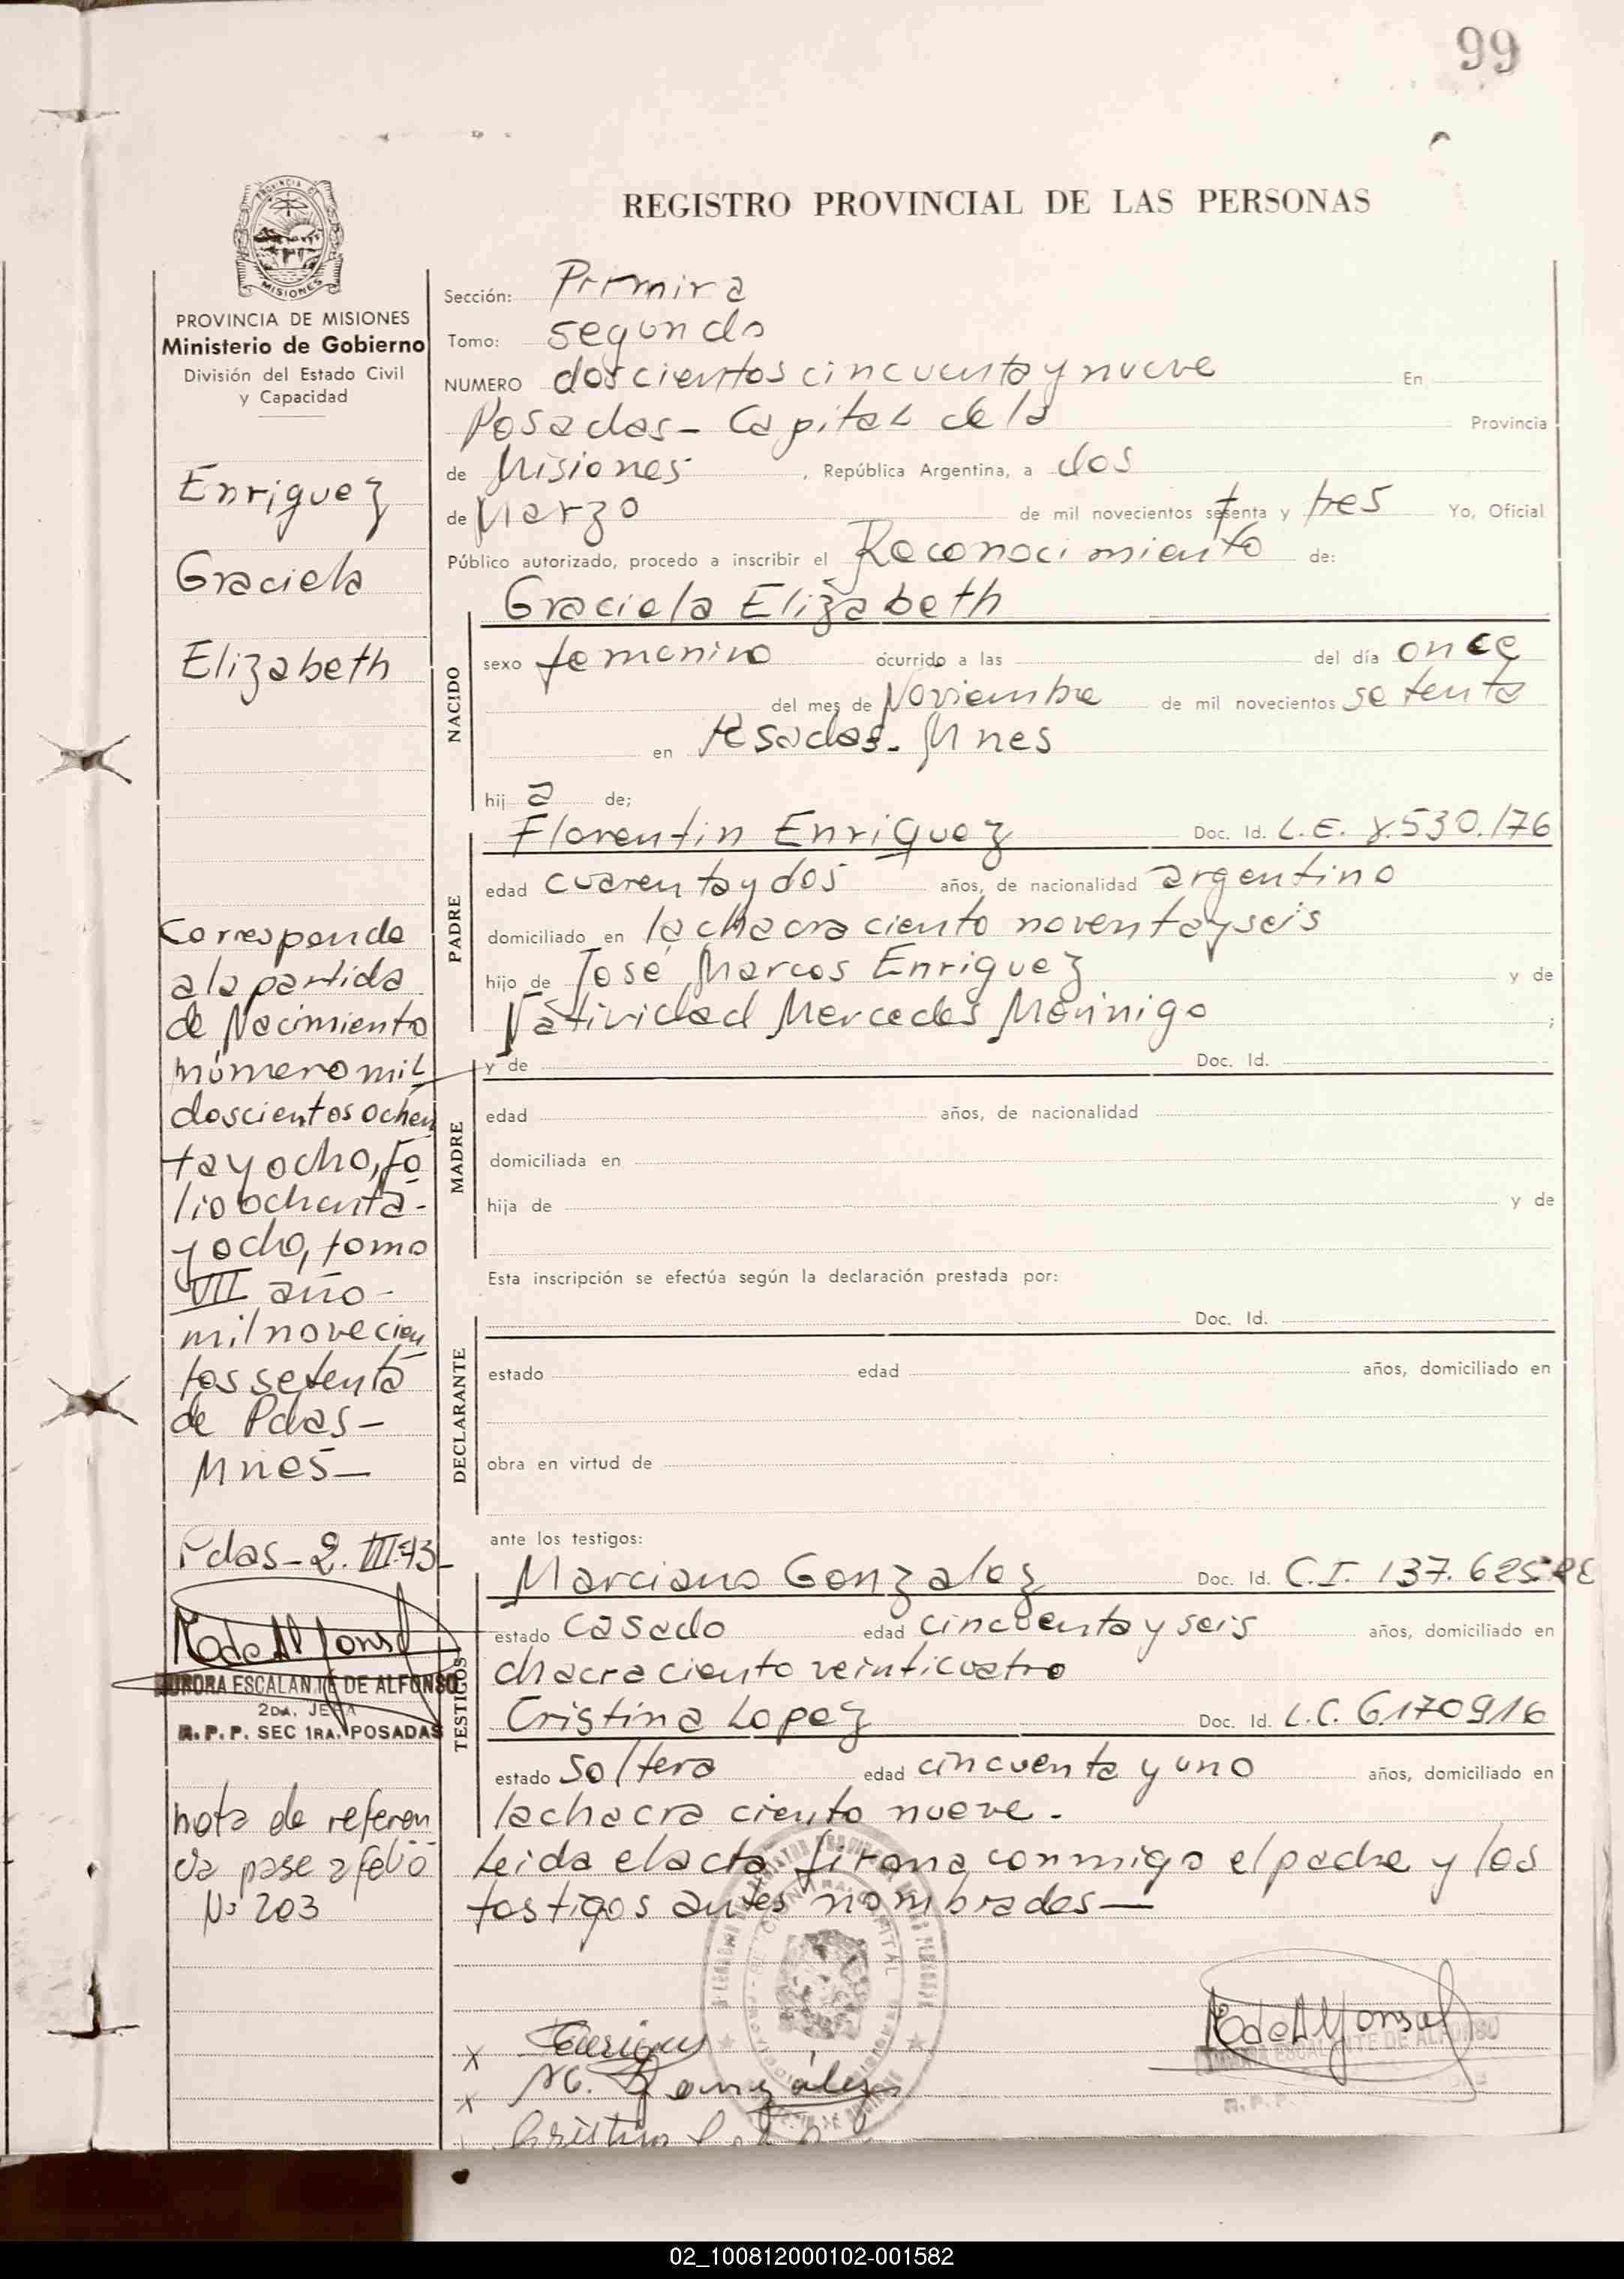 99
REGISTRO PROVINCIAL DE LAS PERSONAS
MISIONES
PROVINCIA DE MISIONES
Ministerio de Gobierno
División del Estado Civil
y Capacidad
Enriquez
Graciela
Elizabeth
Corresponde
a la partida
de Nacimiento
número mil
doscientos ochen
ta y ocho, fo
lio ochenta-
y ocho, tomo
VII año-
mil novecien
tos setenta
de Pdas-
Mnes-
Pdas-2.III.73-
AURORA ESCALANTE DE ALFONSO
2DA. JEFA
R.P.P. SEC 1RA. POSADAS
nota de referen
cia pase a folio
Nº 203
Sección: Primera
Tomo: segundo
NUMERO doscientos cincuenta y nueve En
Posadas- Capital de la Provincia
de Misiones, República Argentina, a dos
de Marzo de mil novecientos setenta y tres Yo, Oficial
Público autorizado, procedo a inscribir el Reconocimiento de:
Graciela Elizabeth
NACIDO
sexo femenino ocurrido a las del día once
del mes de Noviembre de mil novecientos setenta
en Posadas- Mnes
hij a de;
PADRE
Florentin Enriquez Doc. Id. L.E. 7.530.176
edad cuarenta y dos años, de nacionalidad argentino
domiciliado en la chacra ciento noventa y seis
hijo de José Marcos Enriquez y de
Natividad Mercedes Morinigo ;
MADRE
y de Doc. Id.
edad años, de nacionalidad
domiciliada en
hija de y de
Esta inscripción se efectúa según la declaración prestada por:
DECLARANTE
Doc. Id.
estado edad años, domiciliado en
obra en virtud de
ante los testigos:
TESTIGOS
Marciano Gonzalez Doc. Id. C.I. 137.625
estado casado edad cincuenta y seis años, domiciliado en
chacra ciento veinticuatro
Cristina Lopez Doc. Id. L.C. 6.170916
estado soltera edad cincuenta y uno años, domiciliado en
la chacra ciento nueve.
Leida el acta, firman conmigo el padre y los
testigos antes nombrados—
x Enriquez
x M. González
Cristina
ESCALANTE DE ALFONSO
R.P.P.
02_100812000102-001582